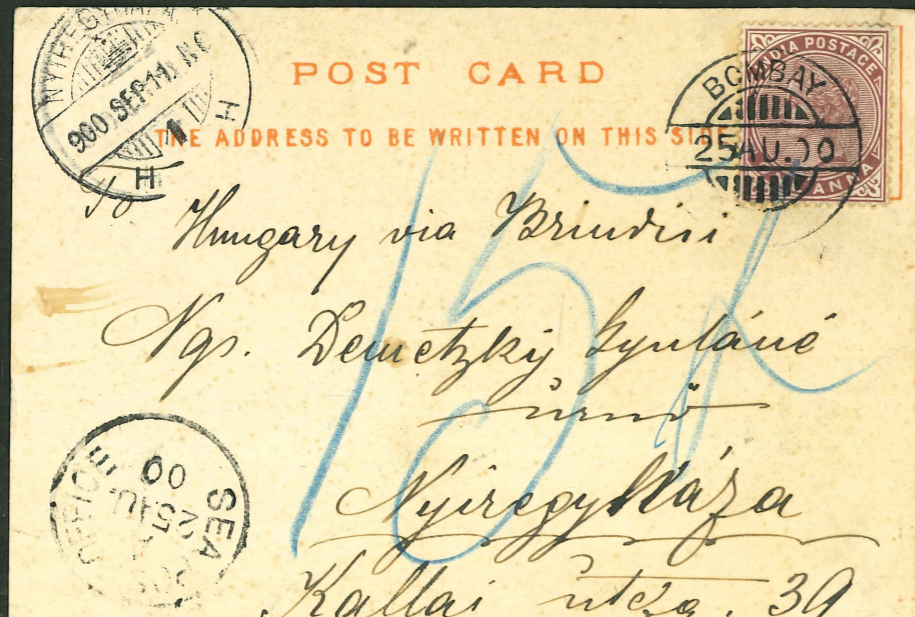 NYIREGYHAZA
900 SEP 11
H
H
POST CARD
THE ADDRESS TO BE WRITTEN ON THIS SIDE
INDIA POSTAGE
ANNA
BOMBAY
25 AU. 00
To
Hungary via Brindisi
Ngs. Demetzky Gyuláné
úrnő
Nyiregyháza
Kallai utcza. 39
15 k
SEA POST OFFICE
25 AU
00